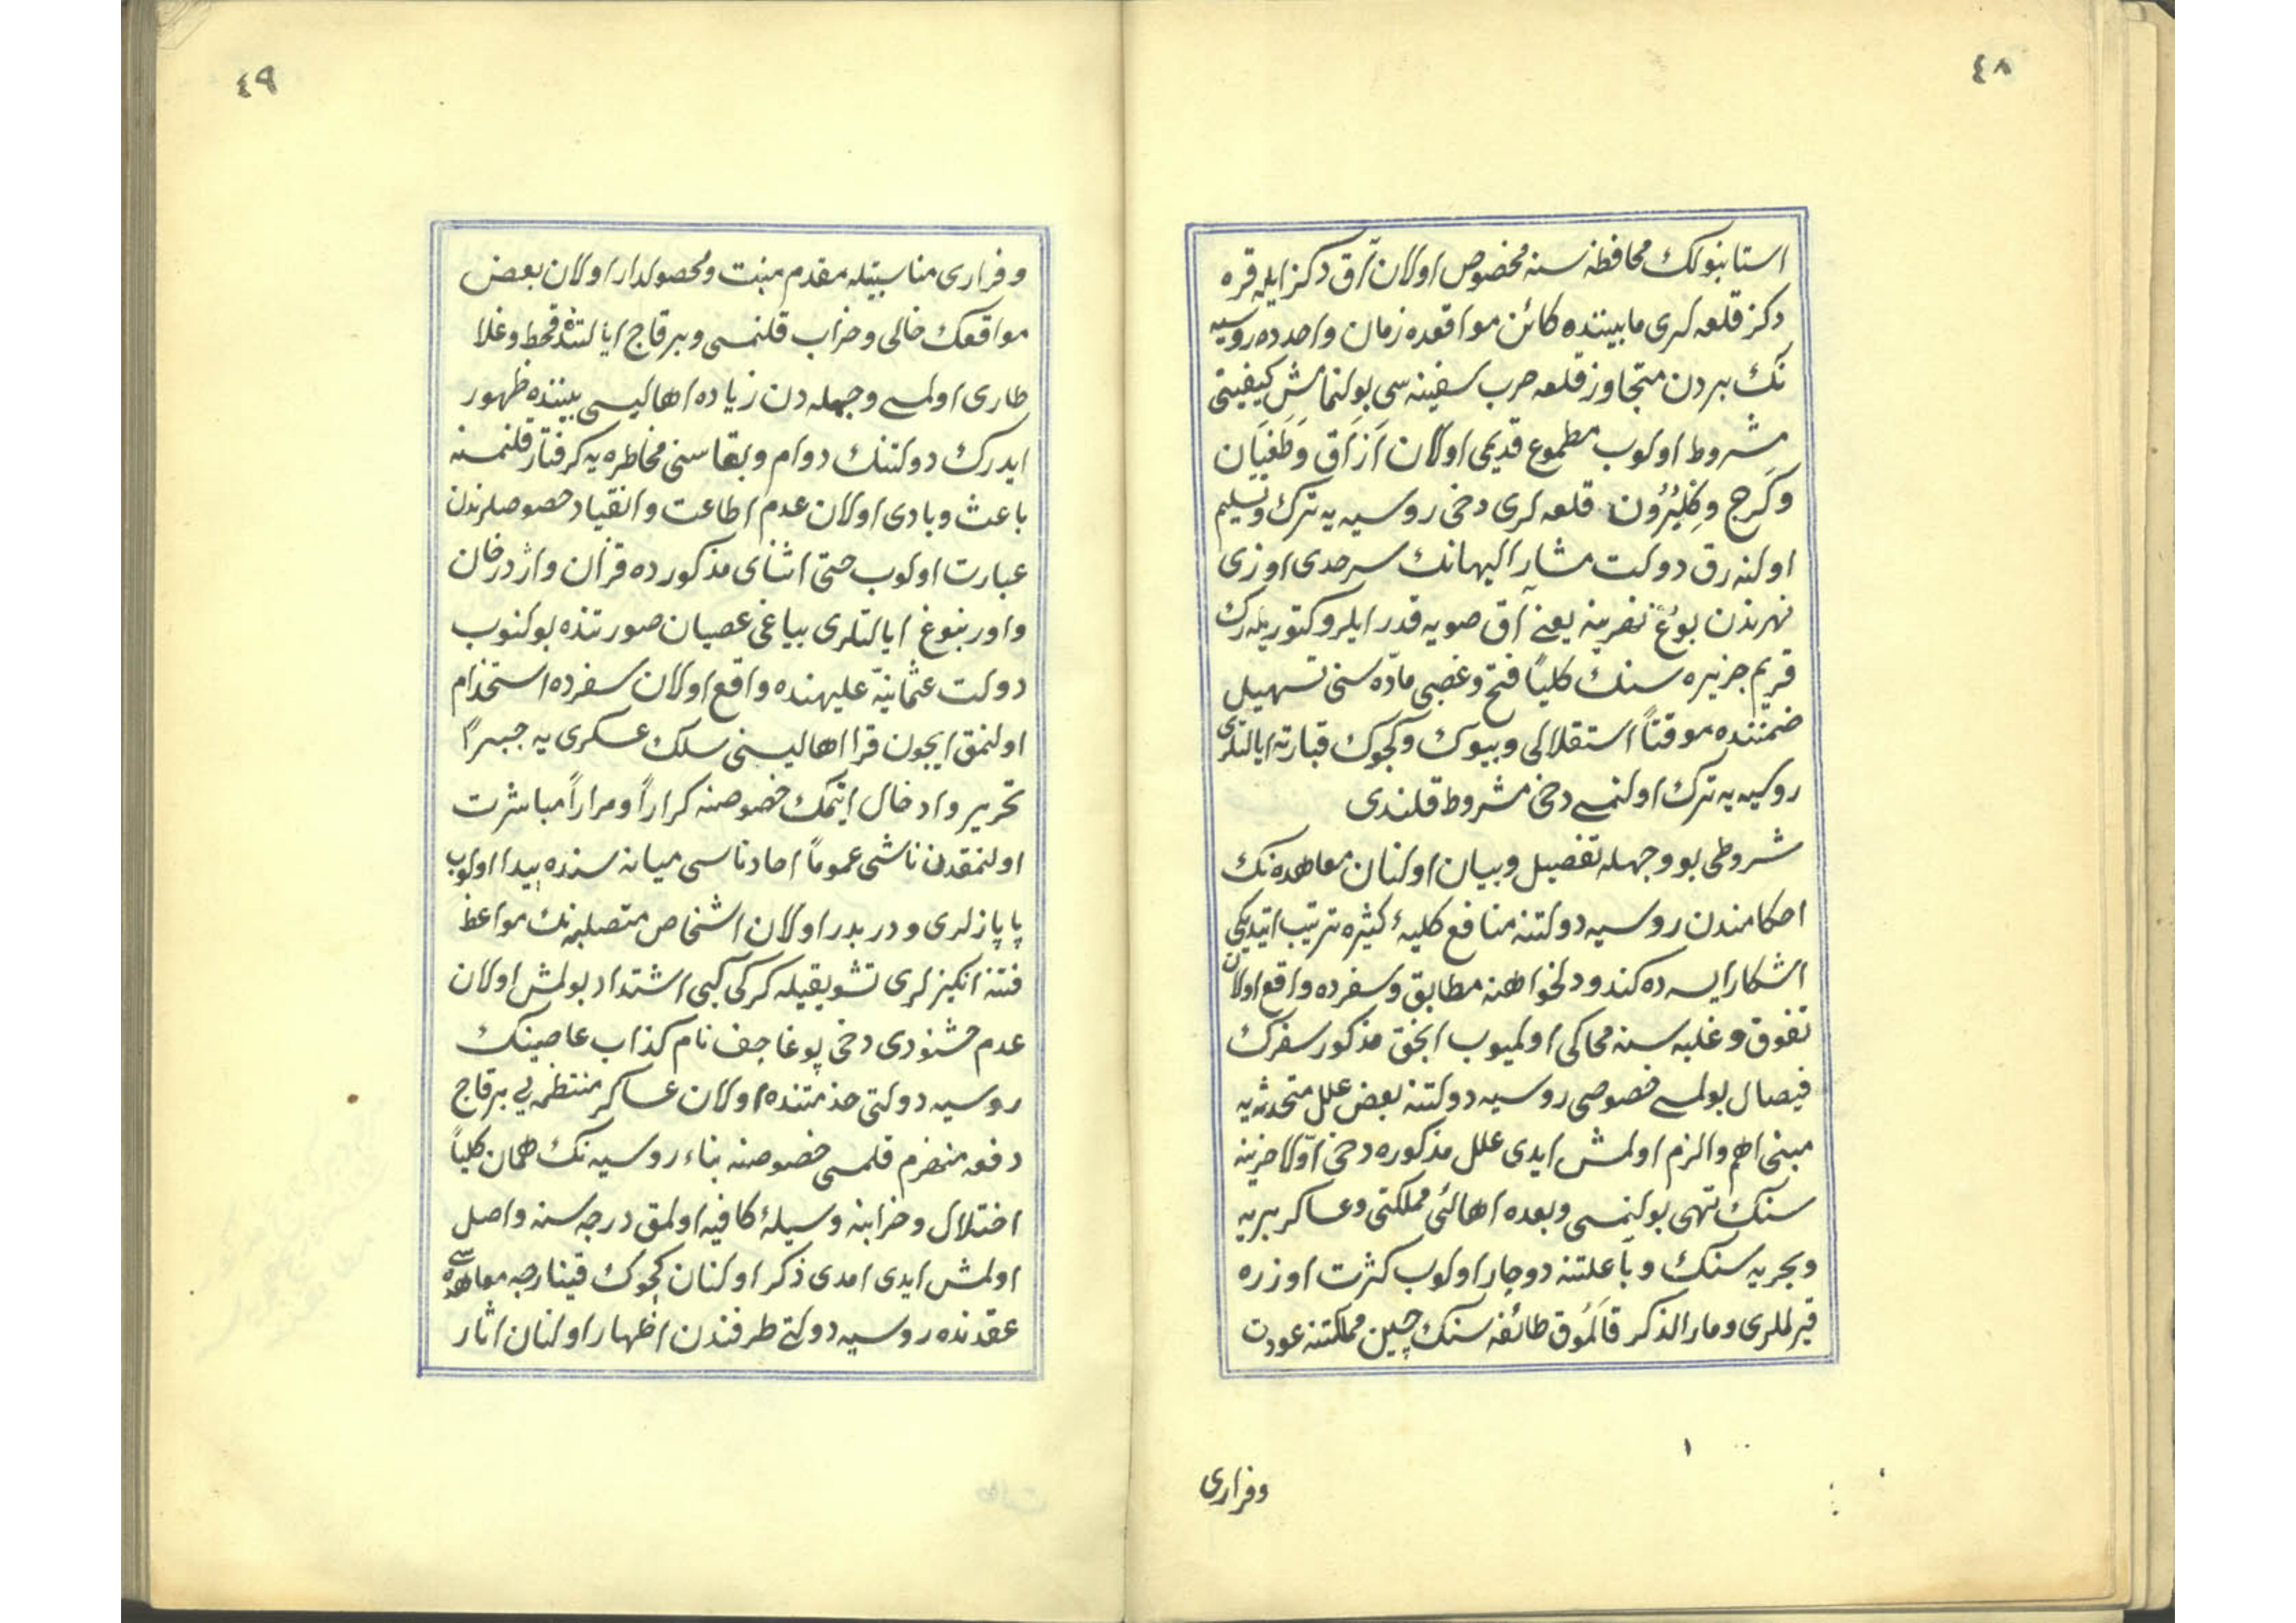 ٤٨
استانبولك محافظه سنه مخصوص اولان آق دكز ايله قره
دكز قلعه لرى مابيننده كائن مواقعده زمان واحدده روسيه
نك بردن متجاوز قلعه حرب سفينه سى بولنمامش كيفيتى
مشروط اولوب مطموع قديمى اولان اَزَاق وَطَغيَان
وكَرج وكِلبُرُون قلعه لرى دخى روسيه يه ترك وتسليم
اولنه رق دولت مشار اليهانك سرحدى اوزى
نهرندن بوغ نهرينه يعنى آق صويه قدر ايلرو كتوريله رك
قريم جزيره سنك كلياً فتح وغصبى ماده سنى تسهيل
ضمننده موقتاً استقلالى وبيوك وكچوك قبارته ايالتلرى
روسيه يه ترك اولنمسى دخى مشروط قلندى
شروطى بو وجهله تفصيل وبيان اولنان معاهده نك
احكامندن روسيه دولتنه منافع كليهٔ كثيره ترتيب ايتديكى
اشكار ايسه ده كندو دلخواهنه مطابق وسفرده واقع اولان
تفوق وغلبه سنه محاكى اولميوب انجق مذكور سفرك
فيصال بولمسى خصوصى روسيه دولتنه بعض علل متحدثه يه
مبنى اهم والزم اولمش ايدى علل مذكوره دخى اوّلا خزينه
سنك تهى بولنمسى وبعده اهالئ مملكتى وعساكر بريه
وبحريه سنك وبا علتنه دوچار اولوب كثرت اوزره
قيرلملرى ومار الذكر قالموق طائفه سنك چين مملكتنه عودت
وفرارى
٤٩
وفرارى مناسبتيله مقدم منبت ومحصولدار اولان بعض
مواقعك خالى وخراب قلنمسى وبر قاچ ايالتنده قحط وغلا
طارى اولمسى وجمله دن زياده اهاليسى بيننده ظهور
ايدرك دولتنك دوام وبقاسنى مخاطره يه كرفتار قلنمسنه
باعث وبادى اولان عدم اطاعت وانقياد خصوصلرندن
عبارت اولوب حتى اثناى مذكورده قزان واژدرخان
واورنبوغ ايالتلرى بياغى عصيان صورتنده بولنوب
دولت عثمانيّه عليهنده واقع اولان سفرده استخدام
اولنمق ايچون قرا اهاليسنى سلك عسكرى يه جبراً
تحرير وادخال ايتمك خصوصنه كراراً ومراراً مباشرت
اولنمقدن ناشى عموماً احاد ناسى ميانه سنده پيدا اولوب
پاپازلرى ودربدر اولان اشخاص متصلبه نك مواعظ
فتنه انكيزلرى تشويقيله كركى كبى اشتداد بولمش اولان
عدم خشنودى دخى پوغاچف نام كذاب عاصينك
روسيه دولتى خدمتنده اولان عساكر منتظمه يى بر قاچ
دفعه منهزم قلمسى خصوصنه بناء روسيه نك همان كلياً
اختلال وخرابنه وسيلهٔ كافيه اولمق درجه سنه واصل
اولمش ايدى امدى ذكر اولنان كچوك قينارجه معاهده سى
عقدنده روسيه دولتى طرفندن اظهار اولنان اثار